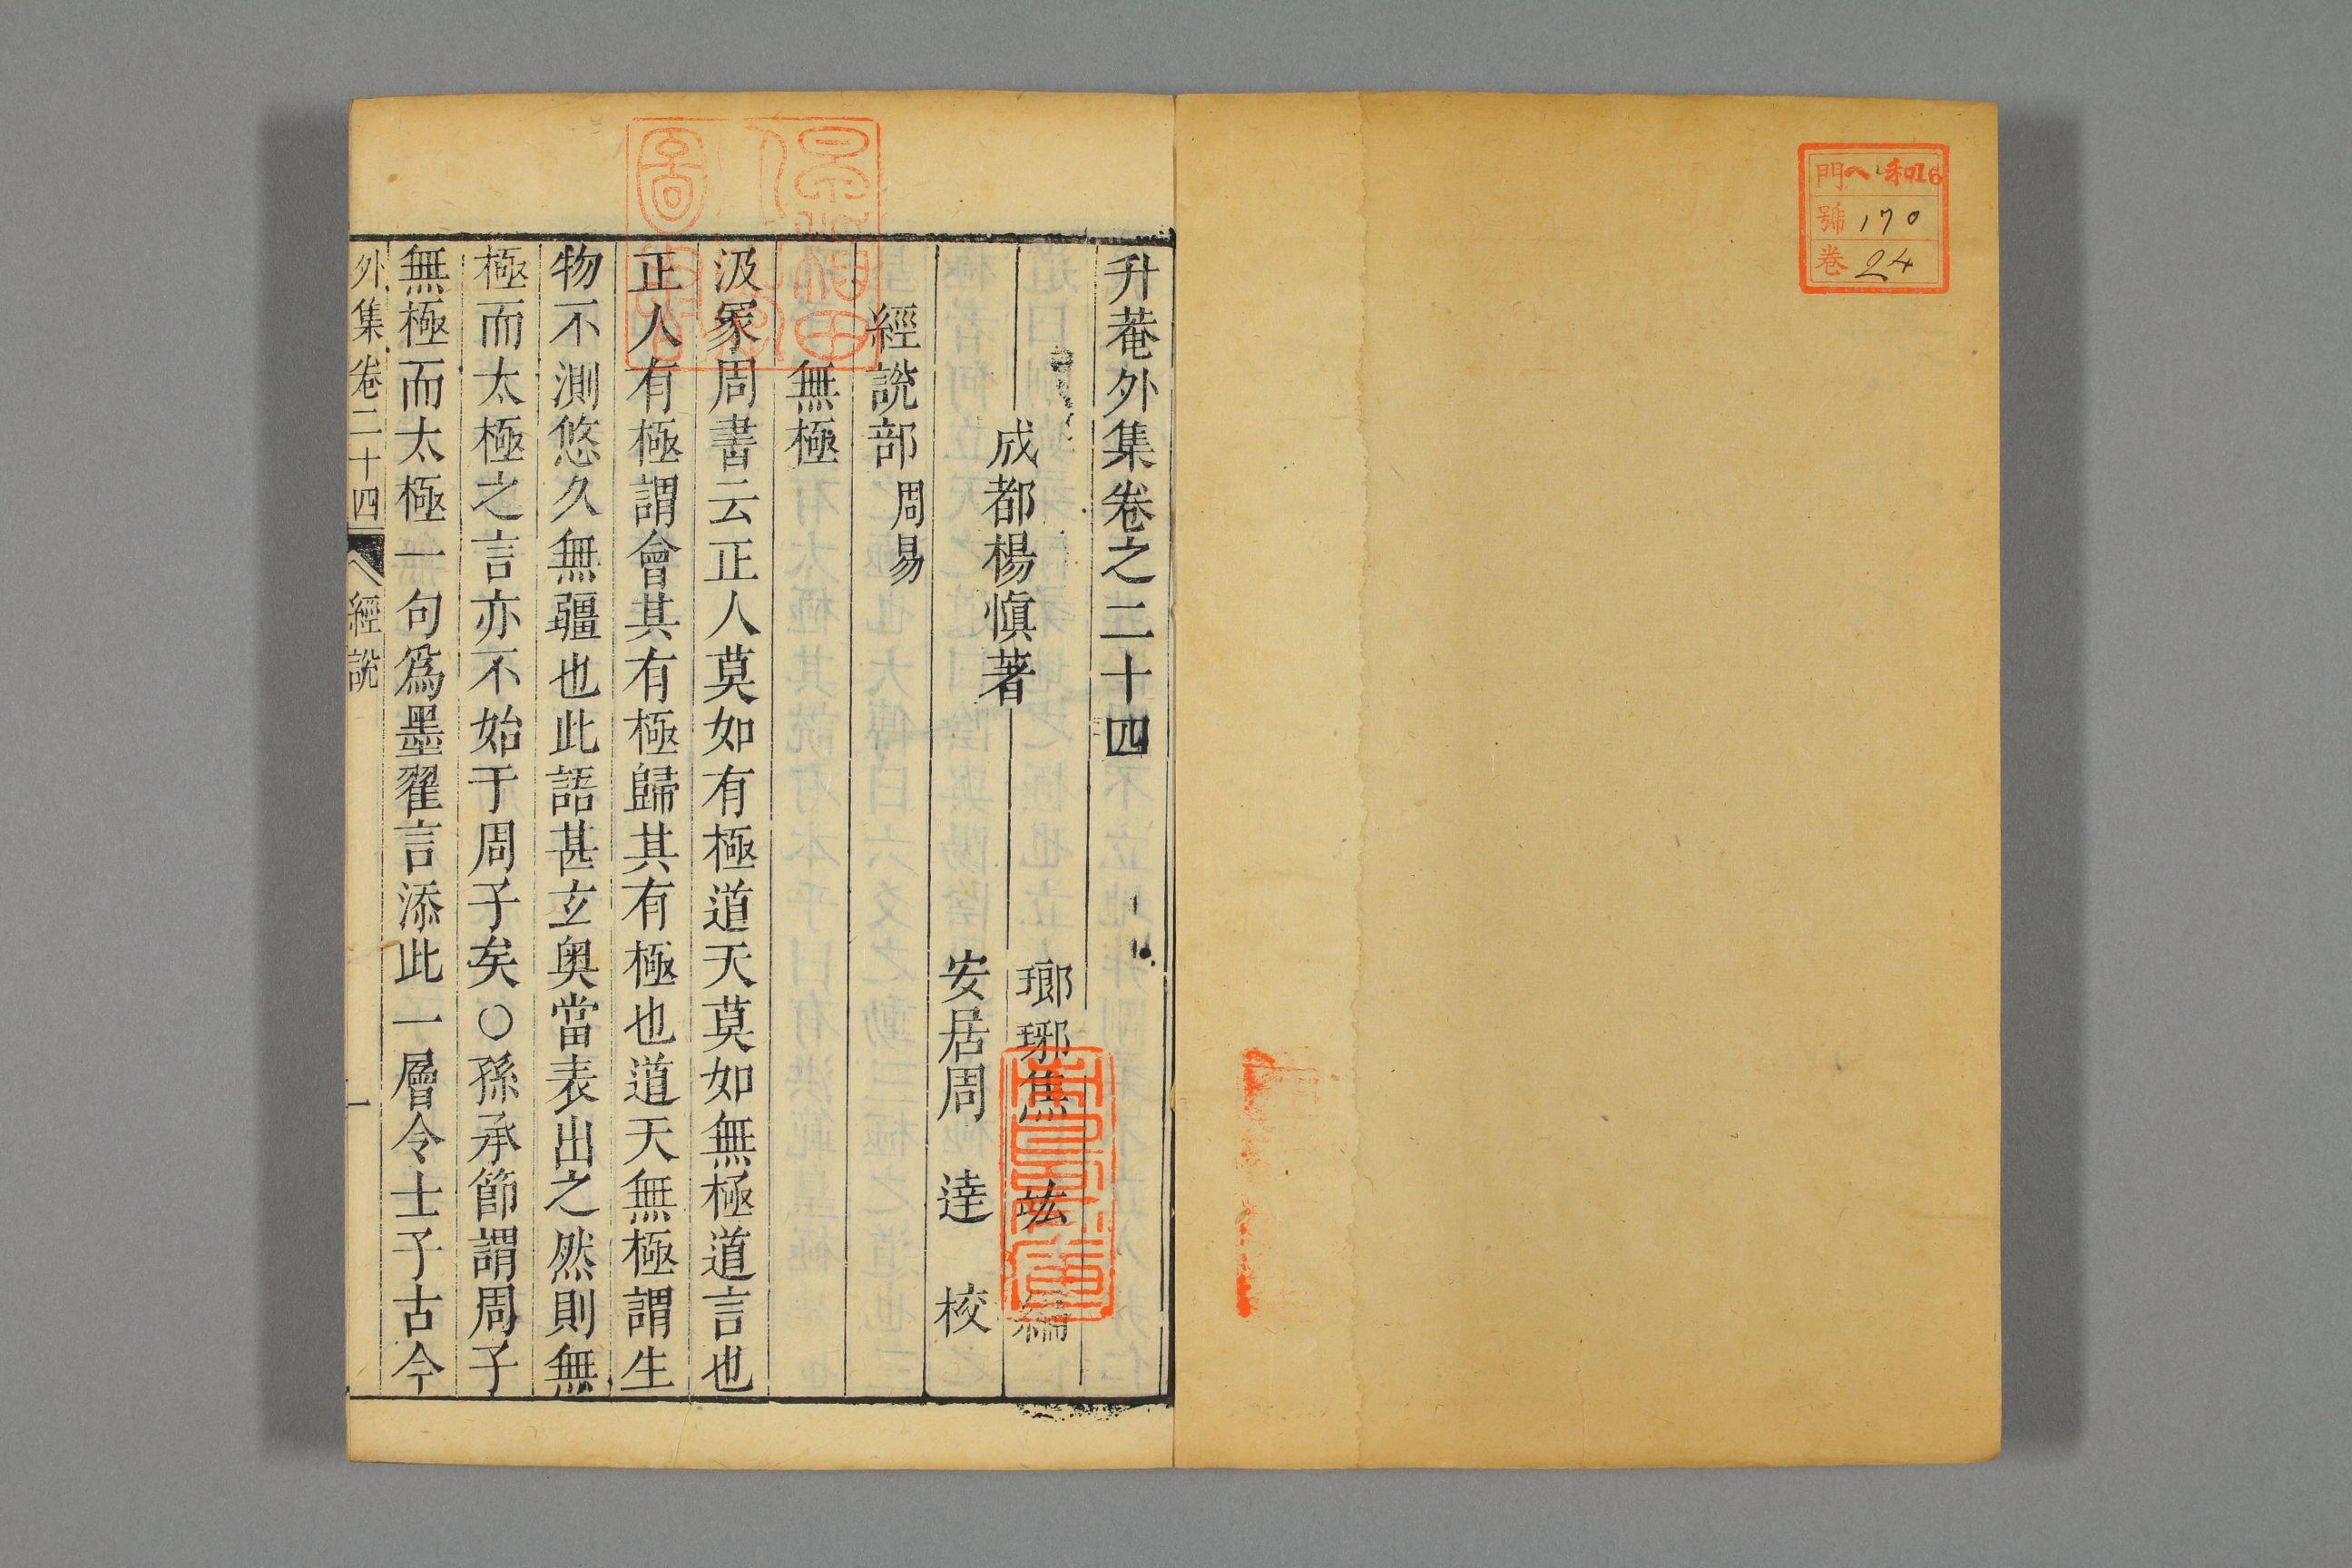 門 ヘ 和16
號 170
卷 24
升菴外集卷之二十四
成都楊慎著
瑯琊焦竑編
安居周達校
經說部 周易
無極
汲冢周書云正人莫如有極道天莫如無極道言也
正人有極謂會其有極歸其有極也道天無極謂生
物不測悠久無疆也此語甚玄奥當表出之然則無
極而太極之言亦不始于周子矣○孫承節謂周子
無極而太極一句爲墨翟言添此一層令士子古今
外集卷二十四 經說 一